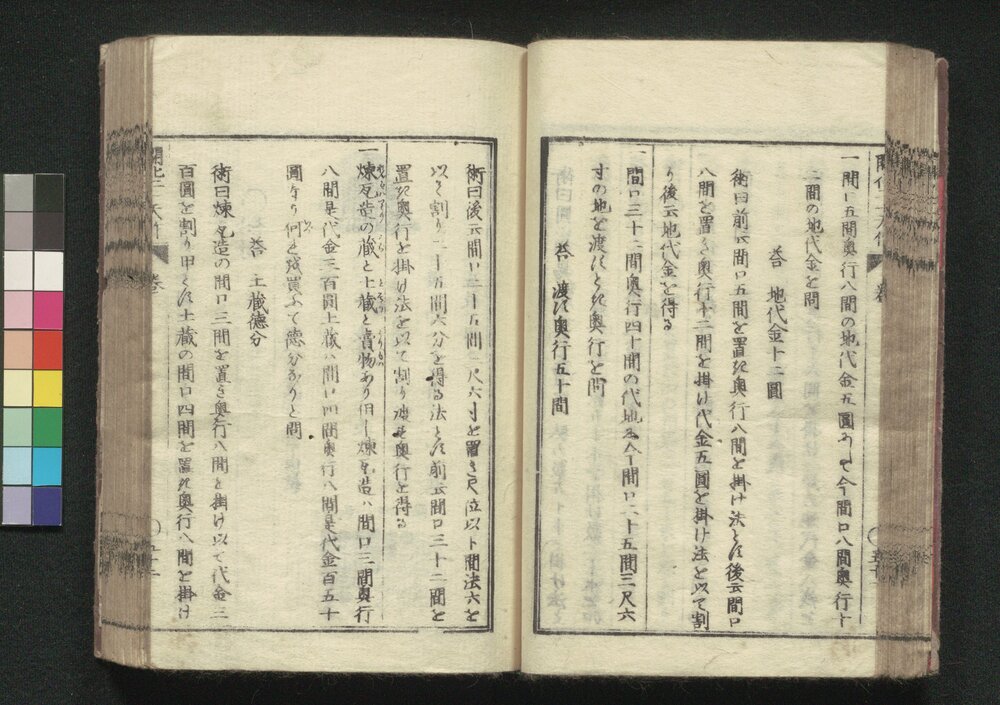 一 間口五間奥行八間の地代金五圓有て今間口八間奥行十
二間の地代金を問
答 地代金十二圓
術曰前云間口五間を置き奥行八間を掛け法とす後云間口
八間を置き奥行十二間を掛け代金五圓を掛け法を以て割
り後云地代金を得る
一 間口三十二間奥行四十間の代地今間口二十五間三尺六
寸の地を渡すとき奥行を問
答 渡す奥行五十間
術曰後云間口二十五間三尺六寸を置き尺位以下間法六を
以て割り二十五間六分を得る法とす前云間口三十二間を
置き奥行を掛け法を以て割り渡す奥行を得る
一 煉瓦造の蔵と土蔵と賣物あり但し煉瓦造ハ間口三間奥行
八間是代金三百圓土蔵ハ間口四間奥行八間是代金百五十
圓なり何を買ふて徳分なりと問
答 土蔵徳分
術曰煉瓦造の間口三間を置き奥行八間を掛け以て代金三
百圓を割り甲とす土蔵の間口四間を置き奥行八間を掛け